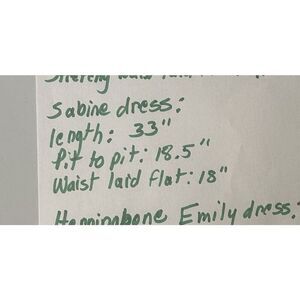 Sabine dress:
length: 33"
Pit to pit: 18.5"
Waist laid flat: 18"
Herringbone Emily dress: